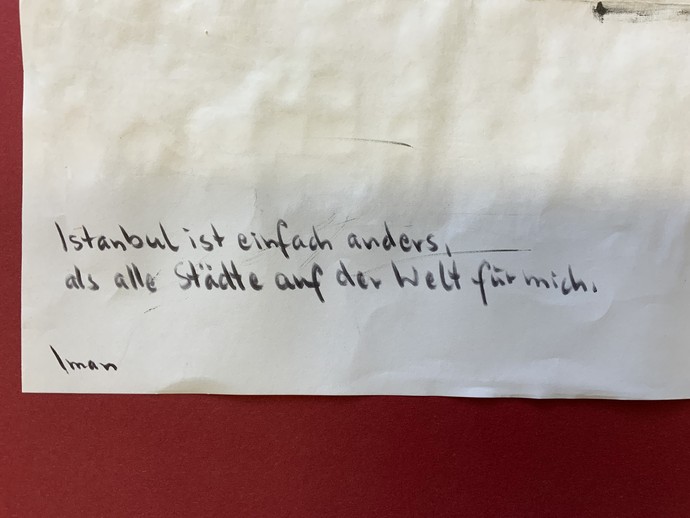 Istanbul ist einfach anders,
als alle Städte auf der Welt für mich.
Iman